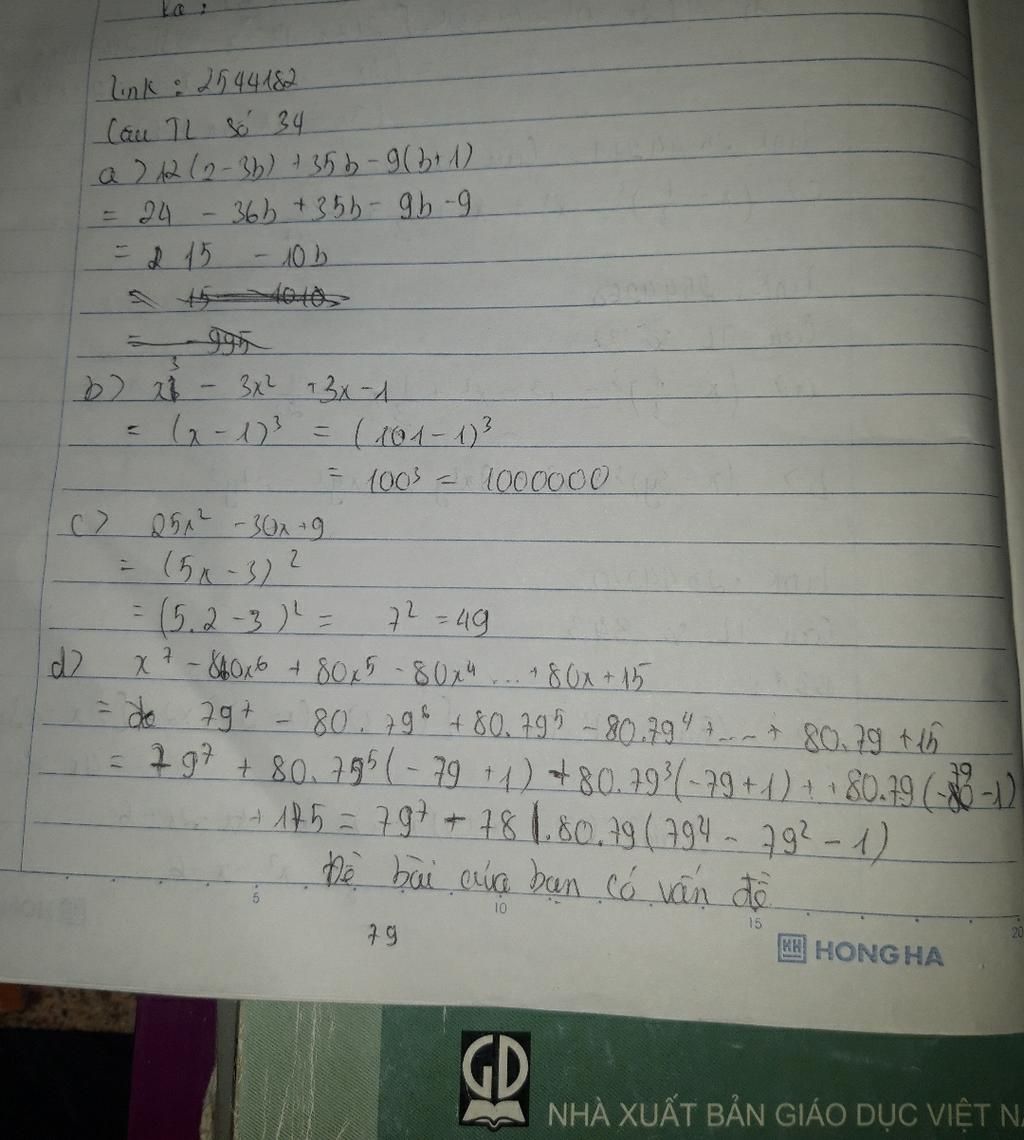 link : 2544182
Câu TL số 34
a) 12(2-3b) + 35b - 9(b+1)
= 24 - 36b + 35b - 9b - 9
= 15 - 10b
= 15 - 1010
= - 995
b) x³ - 3x² + 3x - 1
= (x - 1)³ = (101 - 1)³
= 100³ = 1000000
c) 25x² - 30x + 9
= (5x - 3)²
= (5.2 - 3)² = 7² = 49
d) x⁷ - 80x⁶ + 80x⁵ - 80x⁴ ... + 80x + 15
= 79⁷ - 80.79⁶ + 80.79⁵ - 80.79⁴ + ... + 80.79 + 15
= 79⁷ + 80.79⁵(-79 + 1) + 80.79³(-79 + 1) + 80.79(-79 - 1)
+ 15 = 79⁷ - 78.80.79(79⁴ - 79² - 1)
Đề bài của bạn có vấn đề
5
10
15
20
79
KH HONG HA
GD
NHÀ XUẤT BẢN GIÁO DỤC VIỆT